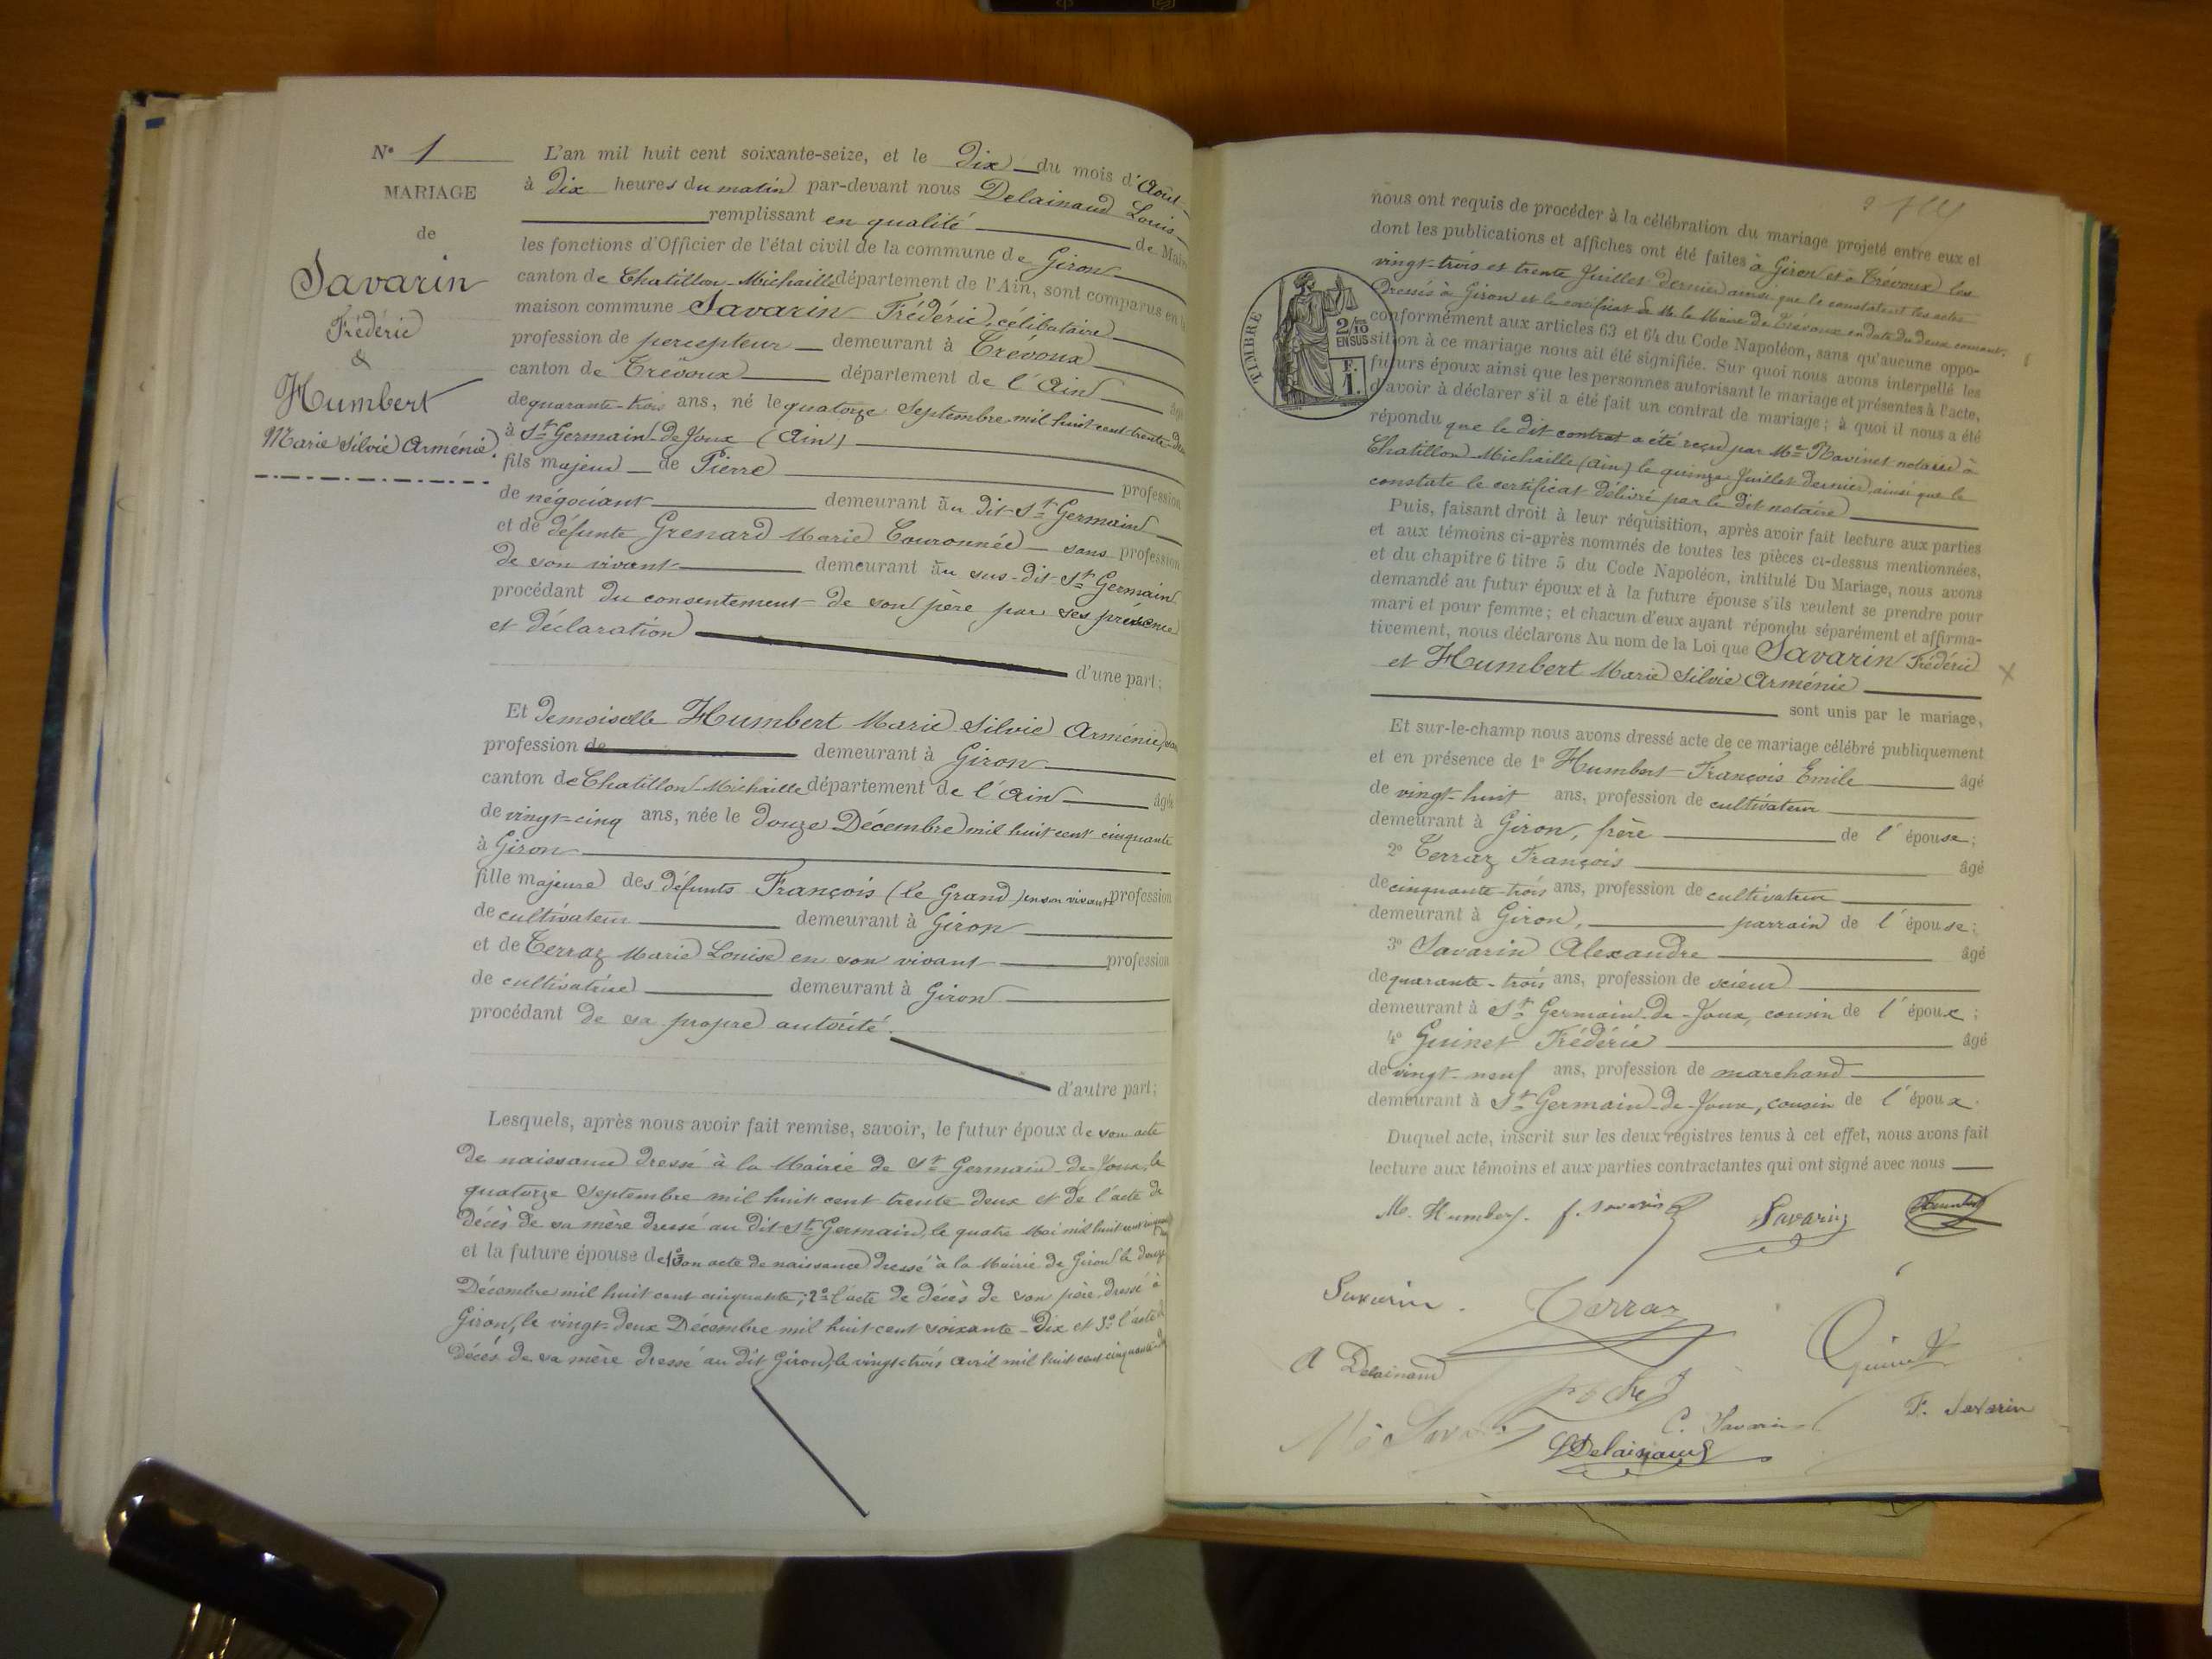 N° 1
MARIAGE
de
Savarin
Frédéric
&
Humbert
Marie Silvie Arménie.
L'an mil huit cent soixante-seize, et le dix du mois d'Août
à dix heures du matin par-devant nous Delainaud Louis
remplissant en qualité de Maire
les fonctions d'Officier de l'état civil de la commune de Giron
canton de Chatillon-Michaille département de l'Ain, sont comparus en la
maison commune Savarin Frédéric, célibataire
profession de percepteur demeurant à Trévoux
canton de Trévoux département de l'Ain âgé
de quarante-trois ans, né le quatorze Septembre mil huit cent trente-deux
à St Germain-de-Joux (Ain)
fils majeur de Pierre profession
de négociant demeurant au dit St Germain
et de défunte Grenard Marie Couronnée sans profession
de son vivant demeurant au sus-dit St Germain
procédant du consentement de son père par ses présence
et déclaration
d'une part;
Et demoiselle Humbert Marie Silvie Arménie, sans
profession de demeurant à Giron
canton de Chatillon-Michaille département de l'Ain âgée
de vingt-cinq ans, née le douze Décembre mil huit cent cinquante
à Giron
fille majeure des défunts François (le Grand) en son vivant profession
de cultivateur demeurant à Giron
et de Terraz Marie Louise en son vivant profession
de cultivatrice demeurant à Giron
procédant de sa propre autorité.
d'autre part;
Lesquels, après nous avoir fait remise, savoir, le futur époux de son acte
de naissance dressé à la Mairie de St Germain-de-Joux, le
quatorze Septembre mil huit cent trente-deux et de l'acte de
décès de sa mère dressé au dit St Germain, le quatre Mai mil huit cent
et la future épouse de 1° son acte de naissance dressé à la Mairie de Giron le douze
Décembre mil huit cent cinquante; 2° l'acte de décès de son père dressé à
Giron, le vingt-deux Décembre mil huit cent soixante-dix et 3° l'acte de
décès de sa mère dressé au dit Giron, le vingt-trois avril mil huit cent
nous ont requis de procéder à la célébration du mariage projeté entre eux et
dont les publications et affiches ont été faites à Giron et à Trévoux les
vingt-trois et trente Juillet dernier ainsi que le constatent les actes
dressés à Giron et le certificat de Mr le Maire de Trévoux en date du deux courant,
TIMBRE
2/10
EN SUS
F.
1.
conformément aux articles 63 et 64 du Code Napoléon, sans qu'aucune oppo-
sition à ce mariage nous ait été signifiée. Sur quoi nous avons interpellé les
futurs époux ainsi que les personnes autorisant le mariage et présentes à l'acte,
d'avoir à déclarer s'il a été fait un contrat de mariage; à quoi il nous a été
répondu que le dit contrat a été reçu par Me Ravinet notaire à
Chatillon-Michaille (Ain) le quinze Juillet dernier, ainsi que le
constate le certificat délivré par le dit notaire
Puis, faisant droit à leur réquisition, après avoir fait lecture aux parties
et aux témoins ci-après nommés de toutes les pièces ci-dessus mentionnées,
et du chapitre 6 titre 5 du Code Napoléon, intitulé Du Mariage, nous avons
demandé au futur époux et à la future épouse s'ils veulent se prendre pour
mari et pour femme; et chacun d'eux ayant répondu séparément et affirma-
tivement, nous déclarons Au nom de la Loi que Savarin Frédéric
et Humbert Marie Silvie Arménie
sont unis par le mariage,
Et sur-le-champ nous avons dressé acte de ce mariage célébré publiquement
et en présence de 1° Humbert François Emile âgé
de vingt-huit ans, profession de cultivateur
demeurant à Giron, frère de l'épouse;
2° Terraz François âgé
de cinquante-trois ans, profession de cultivateur
demeurant à Giron, parrain de l'épouse;
3° Savarin Alexandre âgé
de quarante-trois ans, profession de scieur
demeurant à St Germain-de-Joux, cousin de l'époux;
4° Guinet Frédéric âgé
de vingt-neuf ans, profession de marchand
demeurant à St Germain-de-Joux, cousin de l'époux.
Duquel acte, inscrit sur les deux registres tenus à cet effet, nous avons fait
lecture aux témoins et aux parties contractantes qui ont signé avec nous
M. Humbert. f. Savarin Savarin Humbert
Savarin. Terraz
A Delainaud Guinet
C. Savarin F. Savarin
L Delainaud